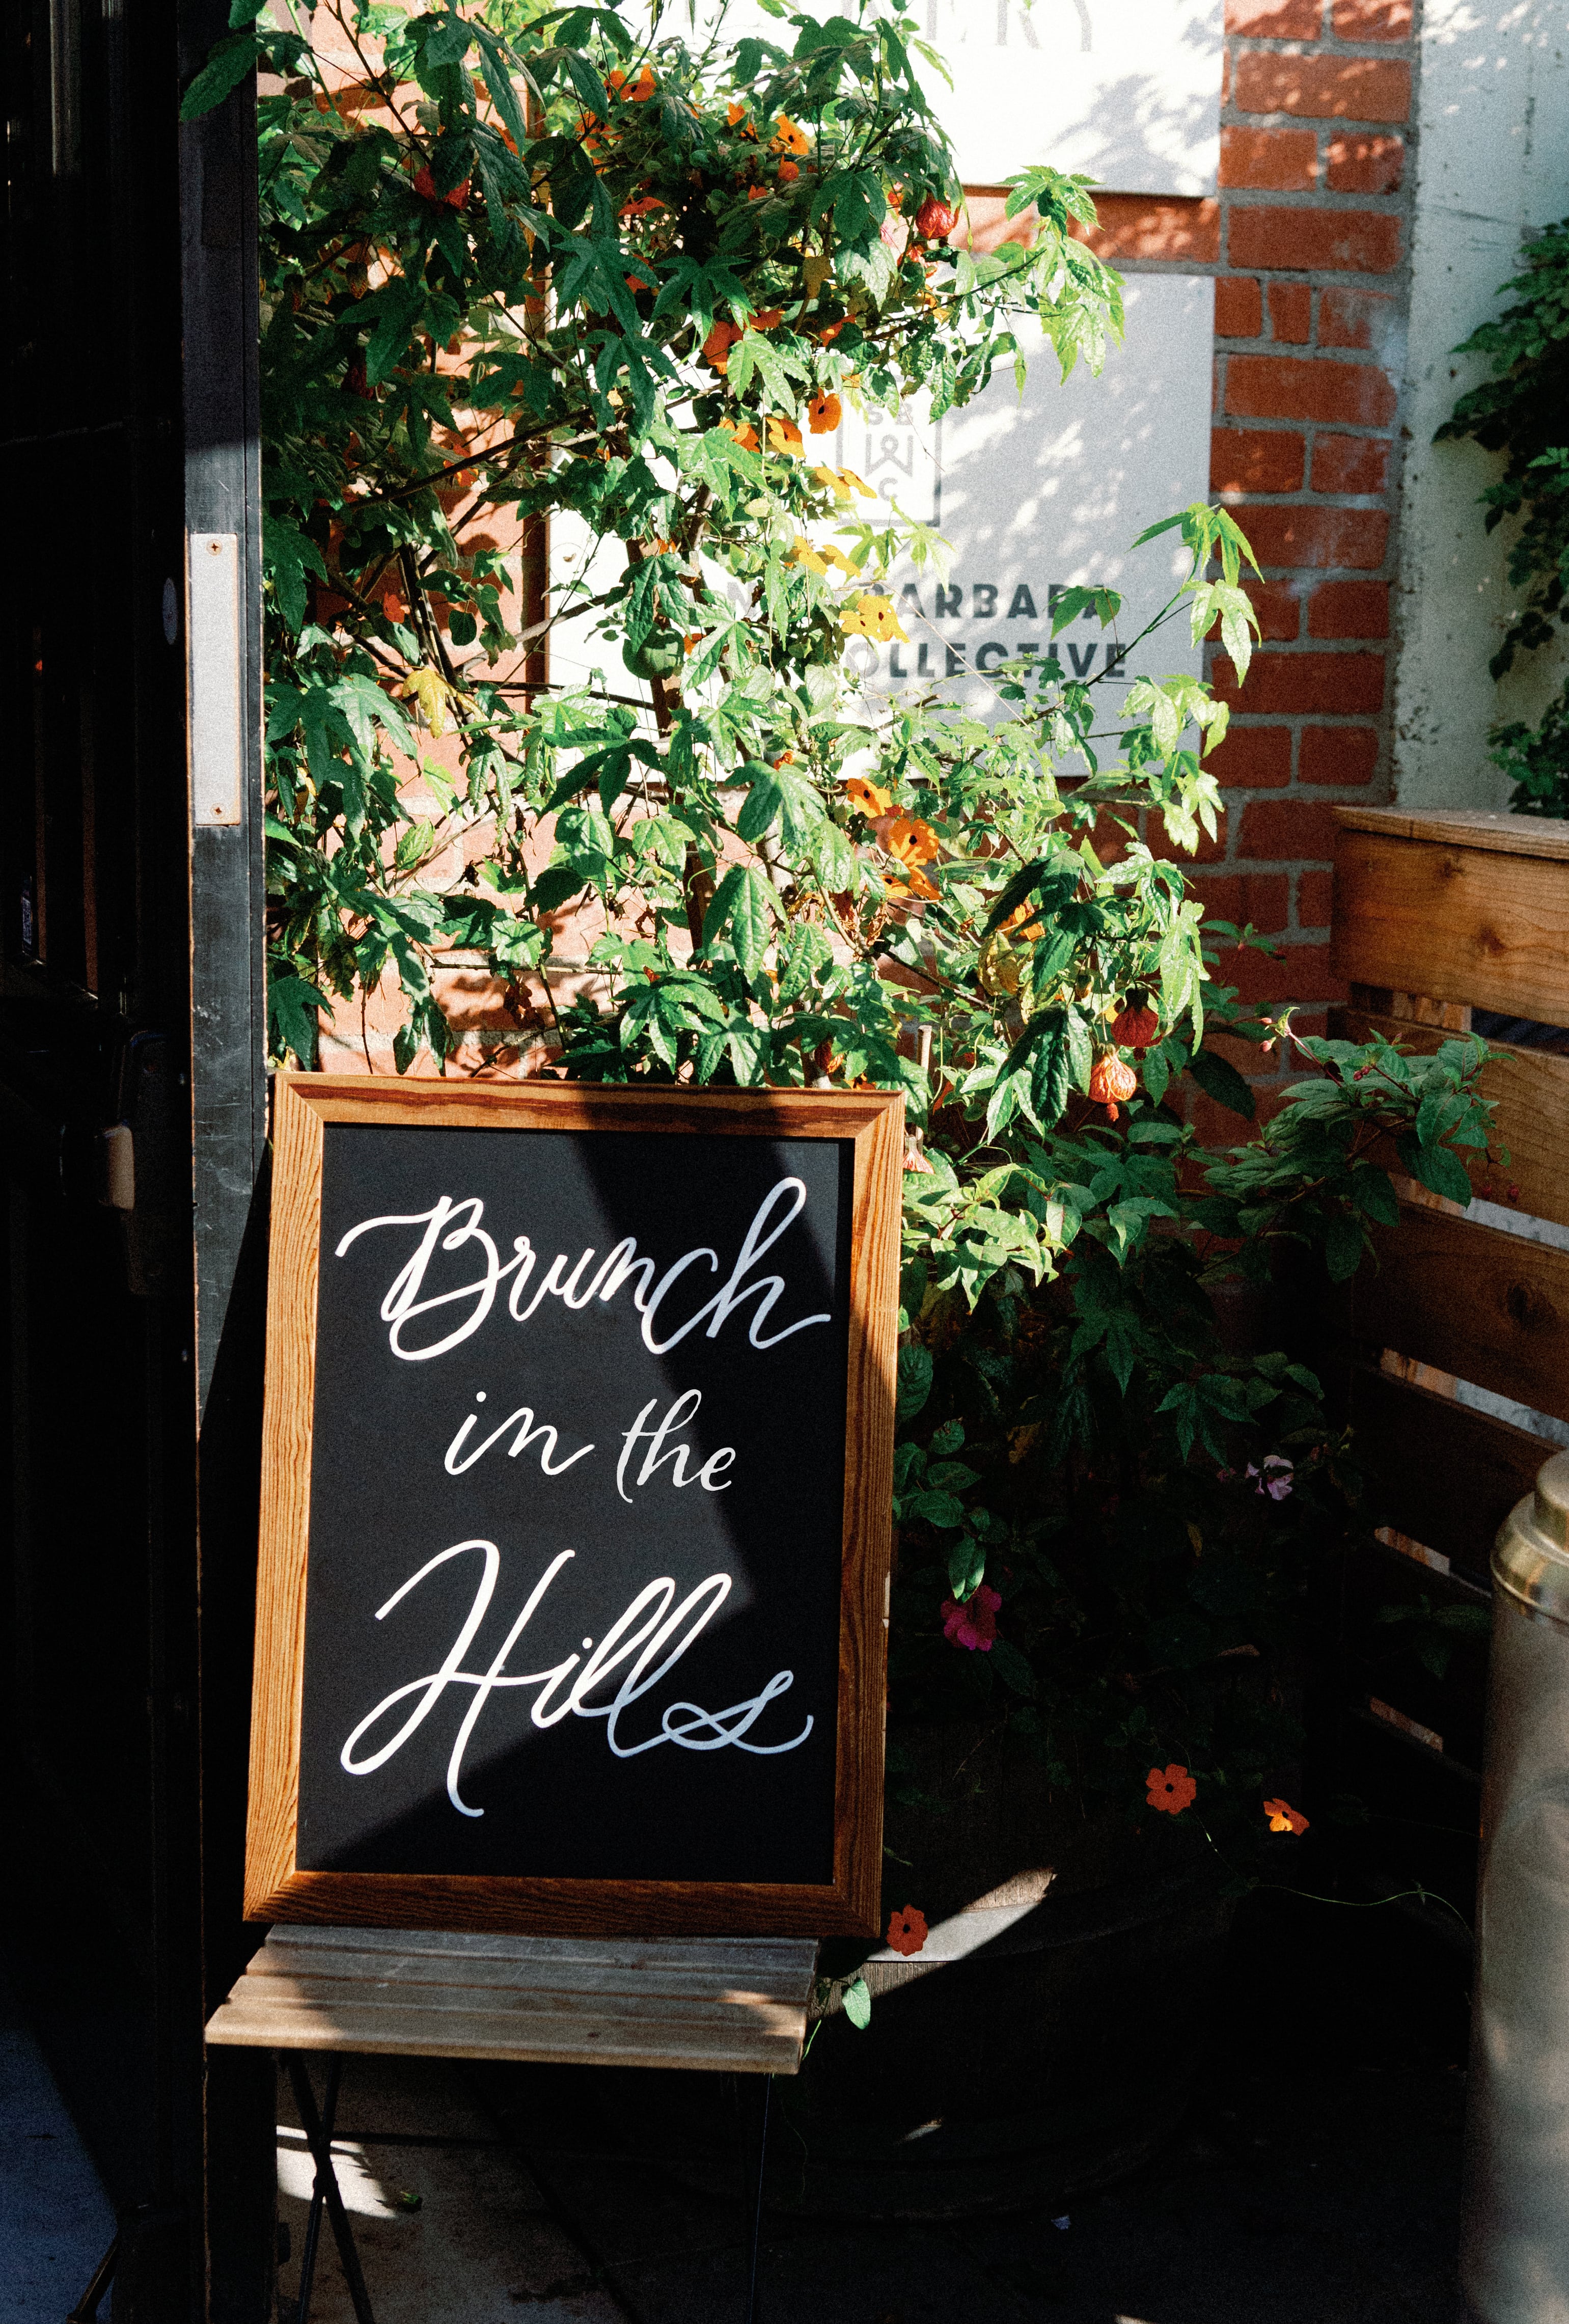 ERY
SB
W
C
BARBARA
OLLECTIVE
Brunch
in the
Hills